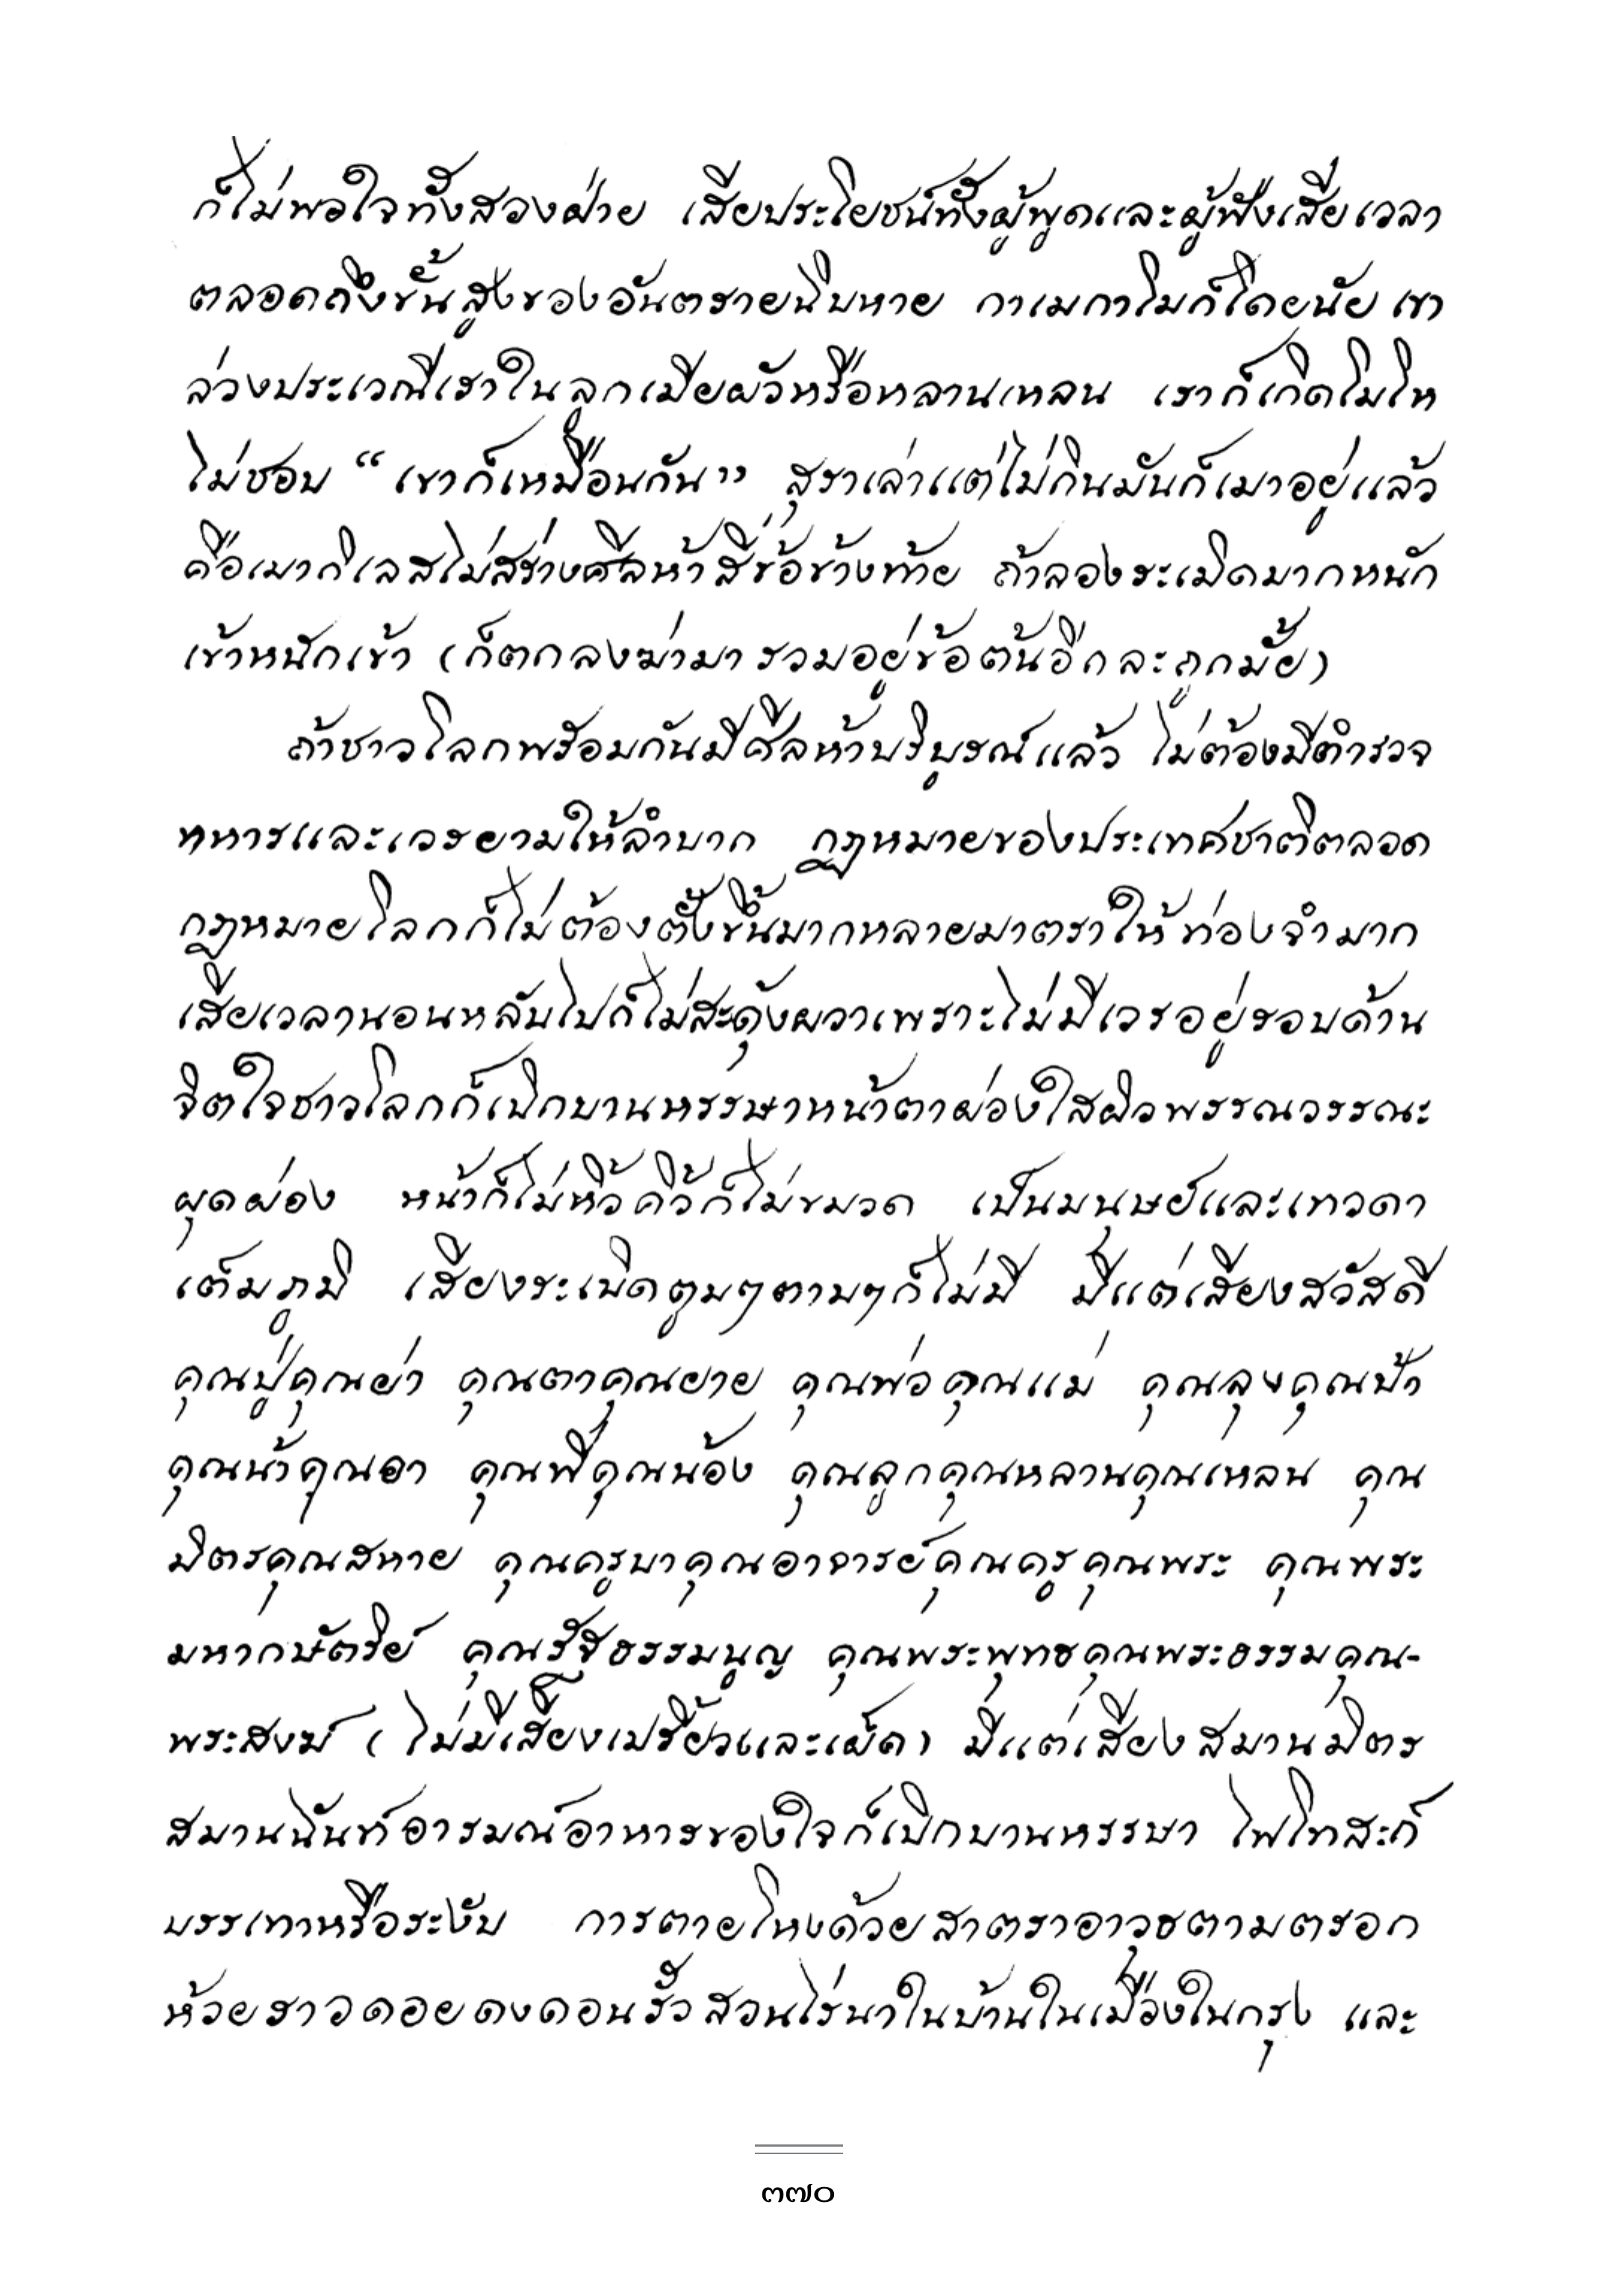 ก็ไม่พอใจทั้งสองฝ่าย เสียประโยชน์ทั้งผู้พูดและผู้ฟังเสียเวลา
ตลอดถึงขั้นสูงของอันตรายฉิบหาย กาเมกาโมก็โดยนัย เขา
ล่วงประเวณีเราในลูกเมียผัวหรือหลานเหลน เราก็เกิดโมโห
ไม่ชอบ “เขาก็เหมือนกัน” สุราเล่าแต่ไม่กินมันก็เมาอยู่แล้ว
คือเมากิเลสไม่สร่างศีลห้าสี่ข้อข้างท้าย ถ้าลองระเมิดมากหนัก
เข้าหนักเข้า (ก็ตกลงฆ่ามารวมอยู่ข้อต้นอีกละถูกมั้ย)
ถ้าชาวโลกพร้อมกันมีศีลห้าบริบูรณ์แล้ว ไม่ต้องมีตำรวจ
ทหารและเวรยามให้ลำบาก กฎหมายของประเทศชาติตลอด
กฎหมายโลกก็ไม่ต้องตั้งขึ้นมากหลายมาตราให้ท่องจำมาก
เสียเวลานอนหลับไปก็ไม่สะดุ้งผวาเพราะไม่มีเวรอยู่รอบด้าน
จิตใจชาวโลกก็เบิกบานหรรษาหน้าตาผ่องใสผิวพรรณวรรณะ
ผุดผ่อง หน้าก็ไม่หิ้วคิ้วก็ไม่ขมวด เป็นมนุษย์และเทวดา
เต็มภูมิ เสียงระเบิดตูมๆตามๆก็ไม่มี มีแต่เสียงสวัสดี
คุณปู่คุณย่า คุณตาคุณยาย คุณพ่อคุณแม่ คุณลุงคุณป้า
คุณน้าคุณอา คุณพี่คุณน้อง คุณลูกคุณหลานคุณเหลน คุณ
มิตรคุณสหาย คุณครูบาคุณอาจารย์คุณครูคุณพระ คุณพระ
มหากษัตริย์ คุณรัฐธรรมนูญ คุณพระพุทธคุณพระธรรมคุณ-
พระสงฆ์ (ไม่มีเสียงเปรี้ยวและเผ็ด) มีแต่เสียงสมานมิตร
สมานฉันท์อารมณ์อาหารของใจก็เบิกบานหรรษา ไฟโทสะก็
บรรเทาหรือระงับ การตายโหงด้วยสาตราอาวุธตามตรอก
ห้วยราวดอยดงดอนรั้วสวนไร่นาในบ้านในเมืองในกรุง และ
๓๗๐